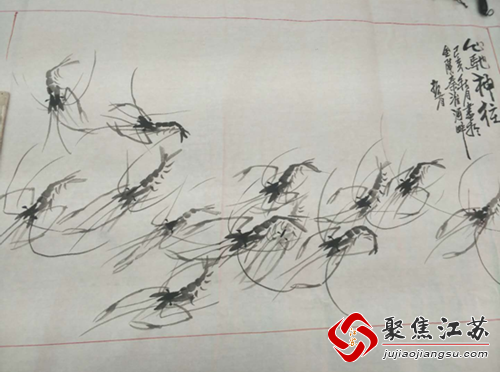 心馳神往
己亥秋月
金陵秦淮河畔
聚焦江苏
jujiaojiangsu.com